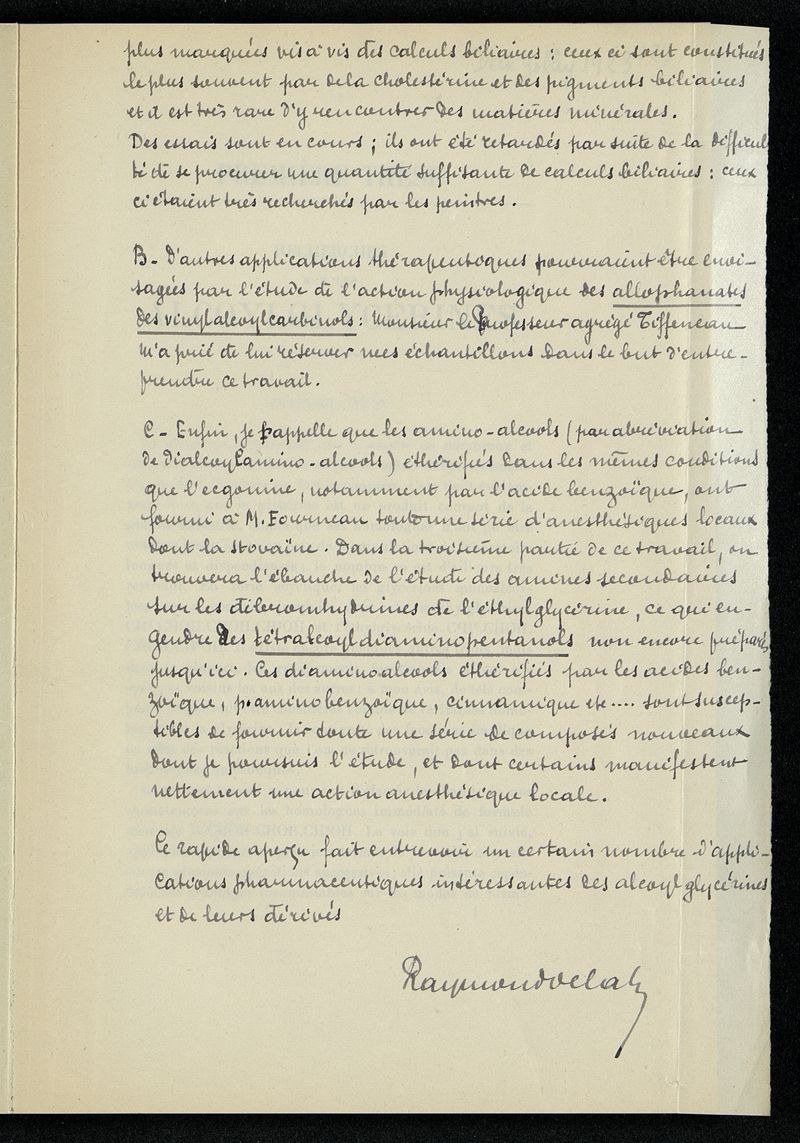 plus marquées vis à vis des calculs biliaires : ceux ci sont constitués
le plus souvent par de la cholestérine et des pigments biliaires
et il est très rare d'y rencontrer des matières minérales.
Des essais sont en cours ; ils ont été retardés par suite de la difficul
té de se procurer une quantité suffisante de calculs biliaires : ceux
ci étaient très recherchés par les peintres.
B - D'autres applications thérapeutiques pourraient être envi-
sagées par l'étude de l'action physiologique des allophanates
des vinylalcoylcarbinols : Monsieur le Professeur agrégé Tiffeneau
m'a prié de lui réserver mes échantillons dans le but d'entre-
prendre ce travail.
C - Enfin, je rappelle que les amino-alcools (par abréviation
de dialcoylamino-alcools) éthérifiés dans les mêmes conditions
que l'ecgonine, notamment par l'acide benzoïque, ont
fourni à M. Fourneau toute une série d'anesthésiques locaux
dont la stovaïne. Dans la troisième partie de ce travail, on
trouvera l'ébauche de l'étude des amines secondaires
sur les dibromhydrines de l'éthylglycérine, ce qui en-
gendre des tétralcoyldiaminopentanols non encore préparés
jusqu'ici. Ces diaminoalcools éthérifiés par les acides ben-
zoïque, p.aminobenzoïque, cinnamique etc .... sont suscep-
tibles de fournir toute une série de composés nouveaux
dont je poursuis l'étude, et dont certains manifestent
nettement une action anesthésique locale.
Ce rapide aperçu fait entrevoir un certain nombre d'appli-
cations pharmaceutiques intéressantes des alcoylglycérines
et de leurs dérivés
Raymond Delaby